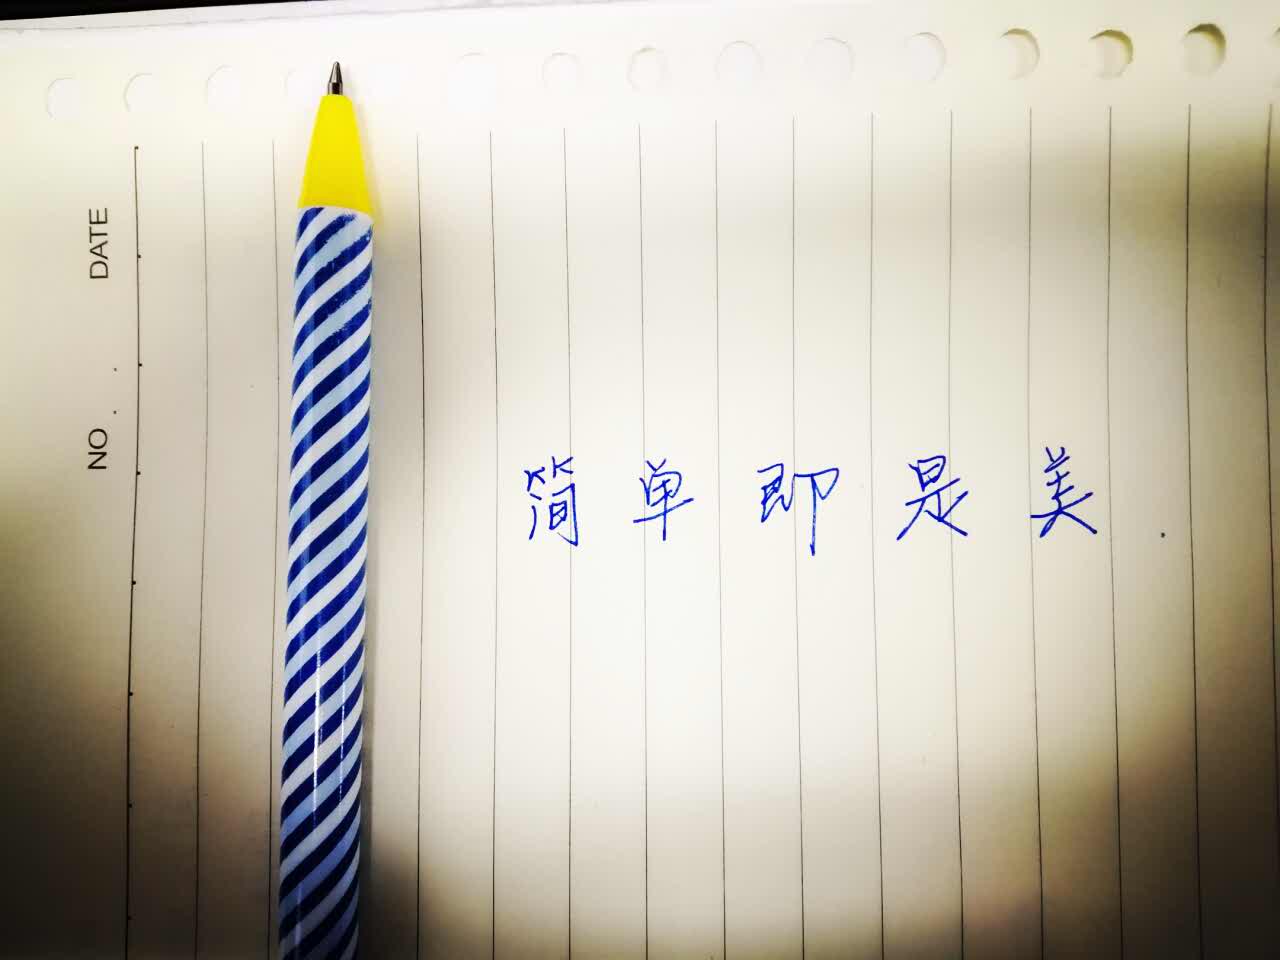 简单即是美.
NO . .
DATE